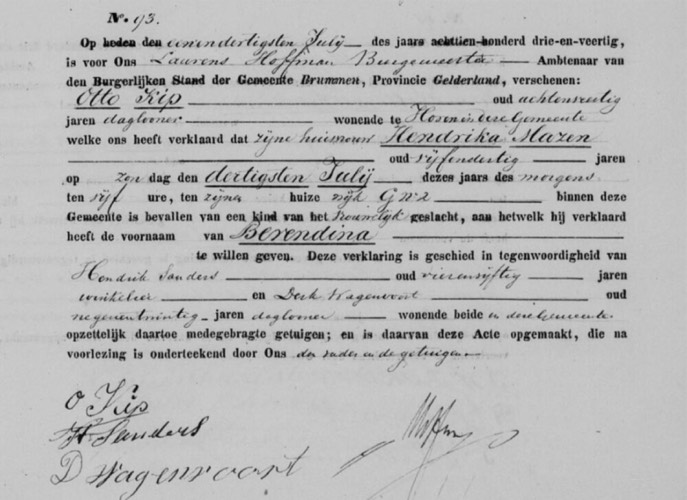 No. 93.
Op heden den eenendertigsten July des jaars achttien-honderd drie-en-veertig,
is voor Ons Laurens Hoffman Burgemeester Ambtenaar van
den Burgerlijken Stand der Gemeente Brummen, Provincie Gelderland, verschenen:
Otto Kip oud achtenveertig
jaren daglooner wonende te in dese Gemeente
welke ons heeft verklaard dat zijne huisvrouw Hendrika Mazen
oud vijfendertig jaren
op zon dag den dertigsten Julij dezes jaars des morgens
ten vijf ure, ten zijne huize wijk G No 2 binnen deze
Gemeente is bevallen van een kind van het vrouwelijk geslacht, aan hetwelk hij verklaard
heeft de voornaam van Berendina
te willen geven. Deze verklaring is geschied in tegenwoordigheid van
Hendrik Sanders oud vierenvijftig jaren
winkelier en Derk Wagenvoort oud
negenentwintig jaren daglooner wonende beide in dese Gemeente
opzettelijk daartoe medegebragte getuigen; en is daarvan deze Acte opgemaakt, die na
voorlezing is onderteekend door Ons den vader en de getuigen
O Kip
H Sanders
D Wagenvoort